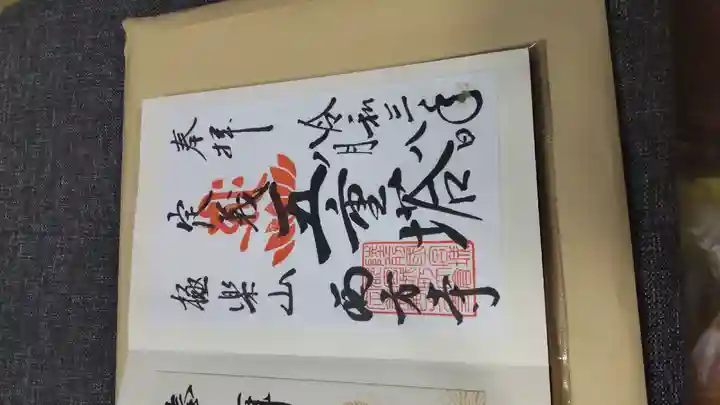 奉拝
令和三年
八月八日
定義
五重塔
極楽山
西方寺